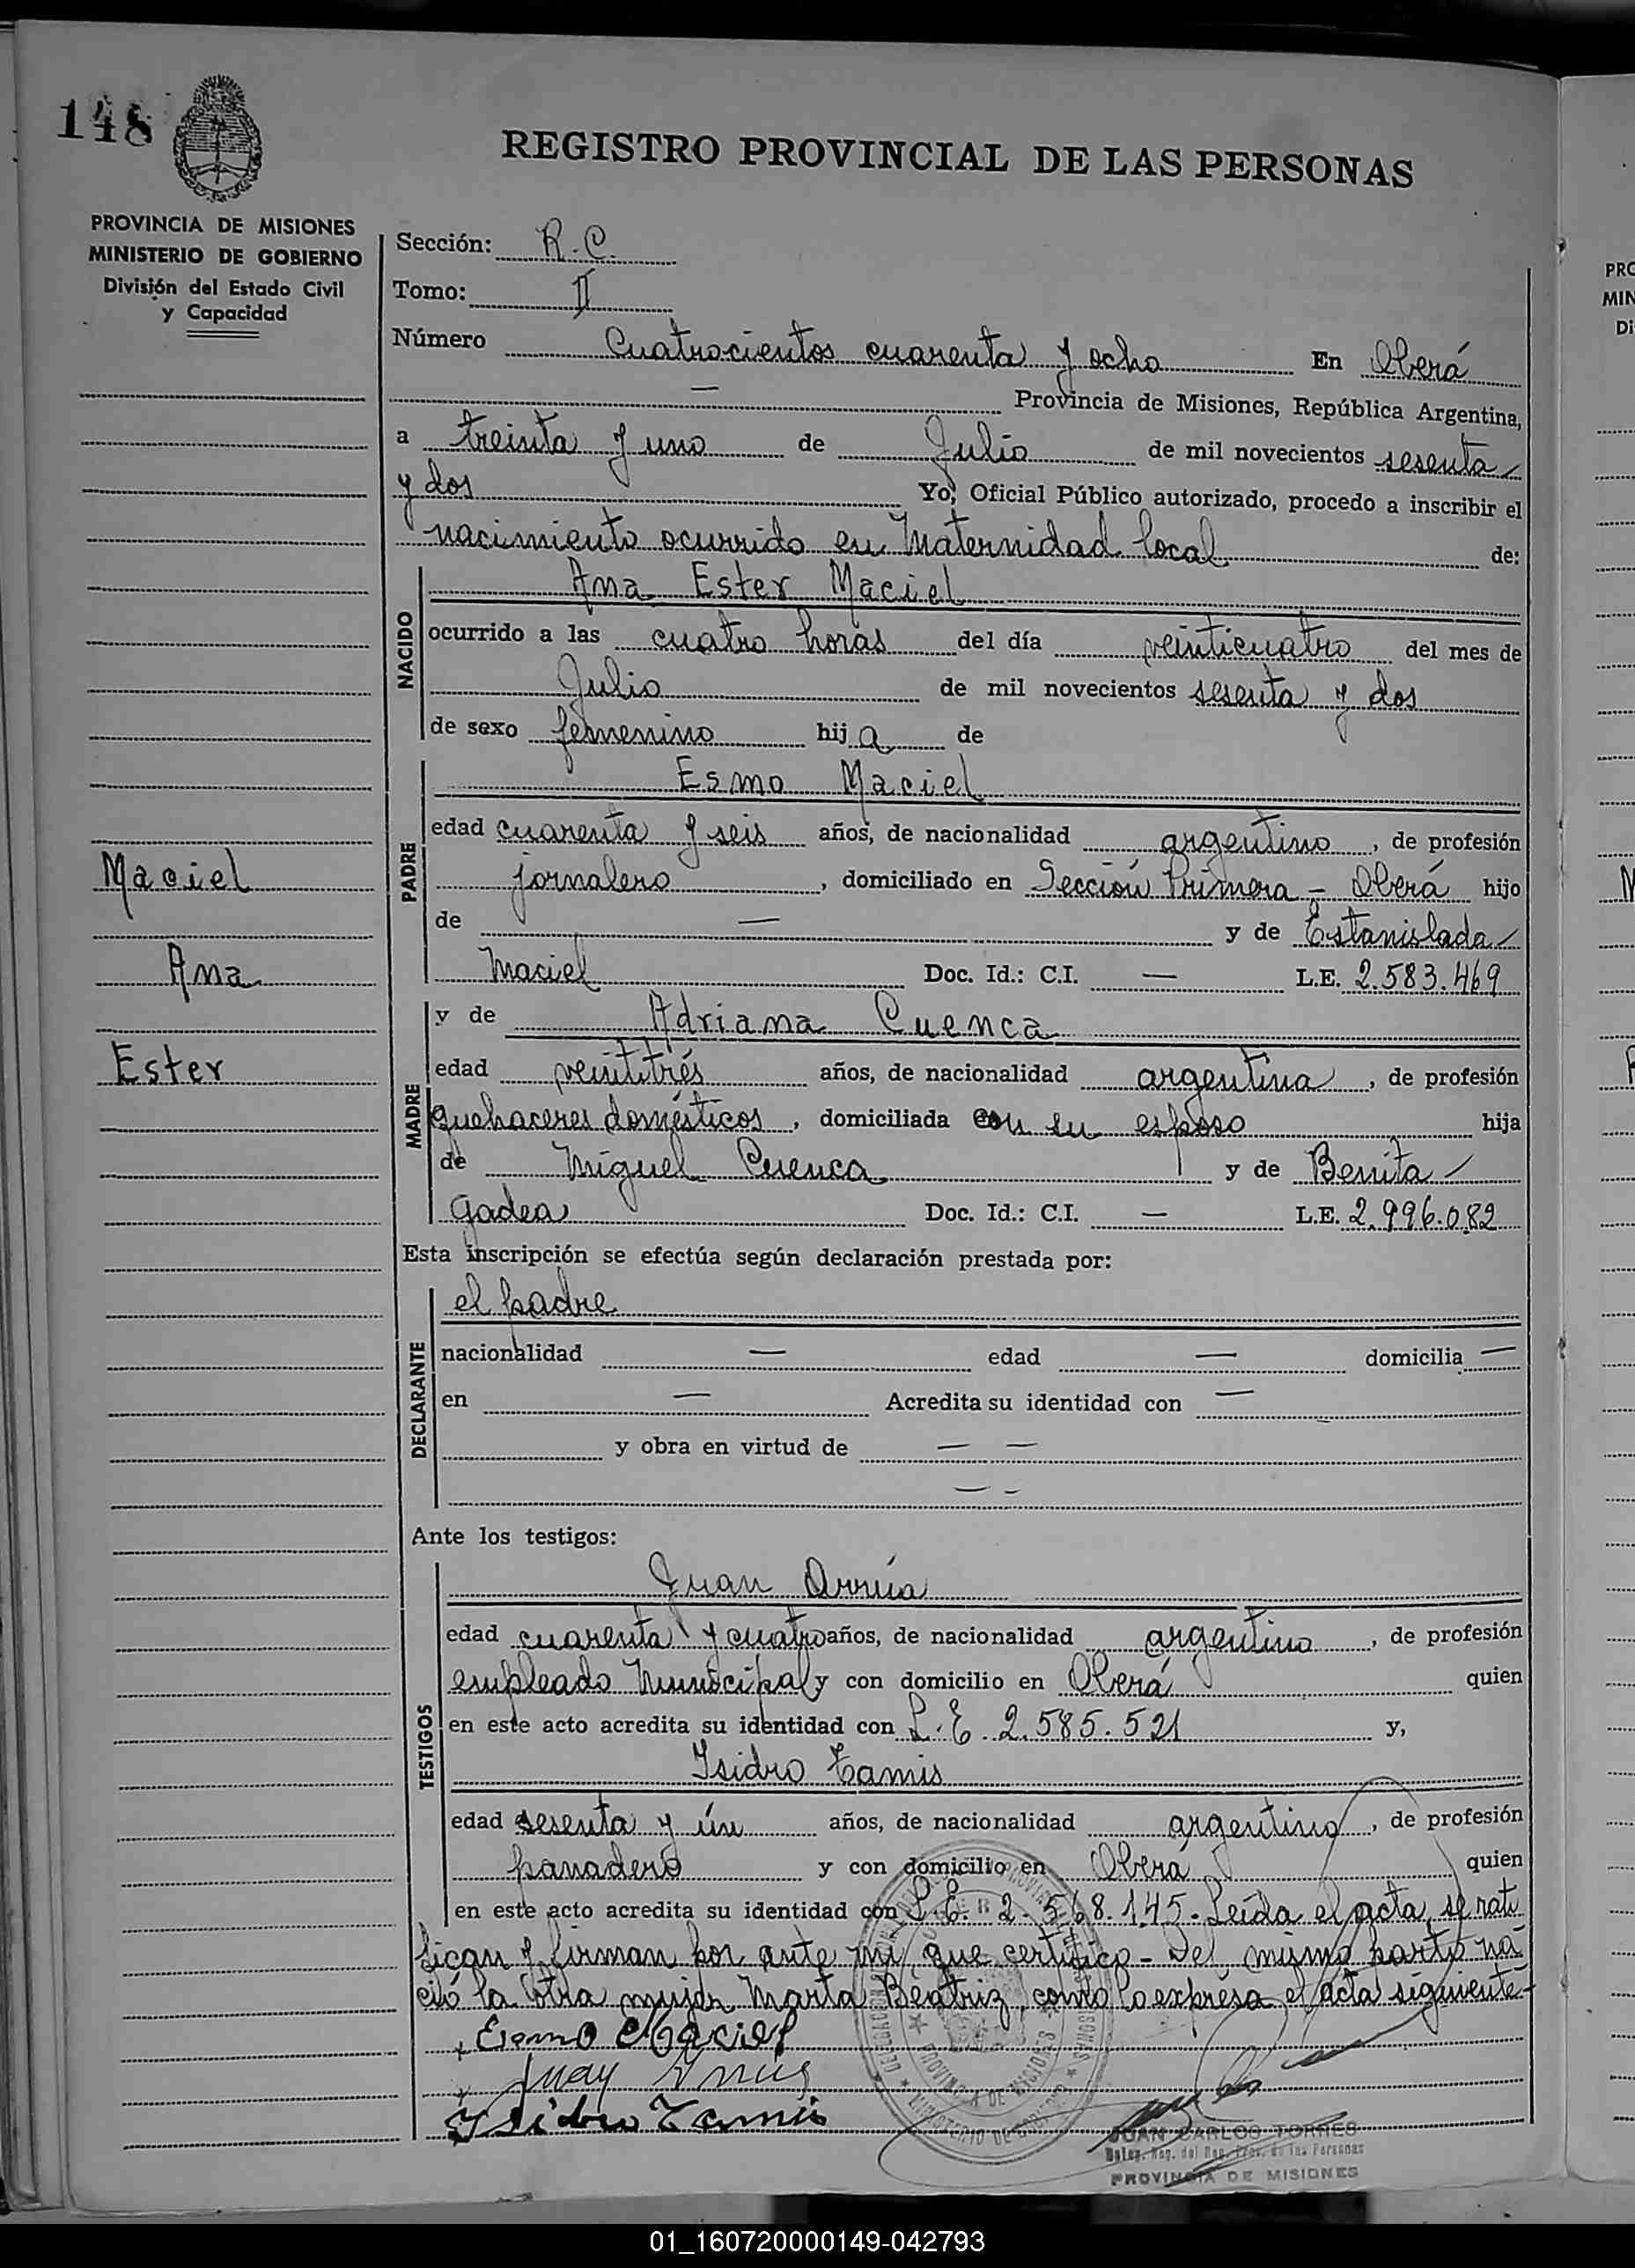 148
REGISTRO PROVINCIAL DE LAS PERSONAS
PROVINCIA DE MISIONES
MINISTERIO DE GOBIERNO
División del Estado Civil
y Capacidad
Sección: R.C.
Tomo: II
Número Cuatrocientos cuarenta y ocho En Oberá
— Provincia de Misiones, República Argentina,
a treinta y uno de Julio de mil novecientos sesenta
y dos Yo, Oficial Público autorizado, procedo a inscribir el
nacimiento ocurrido en Maternidad local de:
NACIDO
Ana Ester Maciel
ocurrido a las cuatro horas del día veinticuatro del mes de
Julio de mil novecientos sesenta y dos
de sexo femenino hija de
PADRE
Esmo Maciel
edad cuarenta y seis años, de nacionalidad argentino, de profesión
jornalero, domiciliado en Sección Primera - Oberá hijo
de — y de Estanislada
Maciel Doc. Id.: C.I. — L.E. 2.583.469
Maciel
Ana
Ester
MADRE
y de Adriana Cuenca
edad veintitrés años, de nacionalidad argentina, de profesión
quehaceres domésticos, domiciliada con su esposo hija
de Miguel Cuenca y de Benita
Gadea Doc. Id.: C.I. — L.E. 2.996.082
Esta inscripción se efectúa según declaración prestada por:
DECLARANTE
el padre
nacionalidad — edad — domicilia —
en — Acredita su identidad con —
y obra en virtud de — —
— -
Ante los testigos:
TESTIGOS
Juan Arrúa
edad cuarenta y cuatro años, de nacionalidad argentino, de profesión
empleado Municipal y con domicilio en Oberá quien
en este acto acredita su identidad con L.E. 2.585.521 y,
Isidro Tamis
edad sesenta y ún años, de nacionalidad argentino, de profesión
panadero y con domicilio en Oberá quien
en este acto acredita su identidad con L.E. 2.568.145.- Leída el acta, se rati
fican y firman por ante mi, que certifico - Del mismo parto na
ció la otra mujer Marta Beatriz, como lo expresa el acta siguiente-
x Esmo Maciel
Isidro Tamis
PROVINCIA DE MISIONES
MINISTERIO DE GOBIERNO
JUAN CARLOS TORRES
Deleg. Reg. del Reg. Prov. de las Personas
PROVINCIA DE MISIONES
01_160720000149-042793